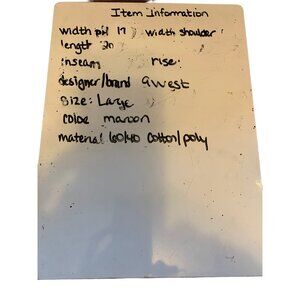 Item Information
width pit 17 width shoulder
length 27
inseam rise:
designer/brand 9west
Size: Large
Color maroon
material 60/40 cotton/poly